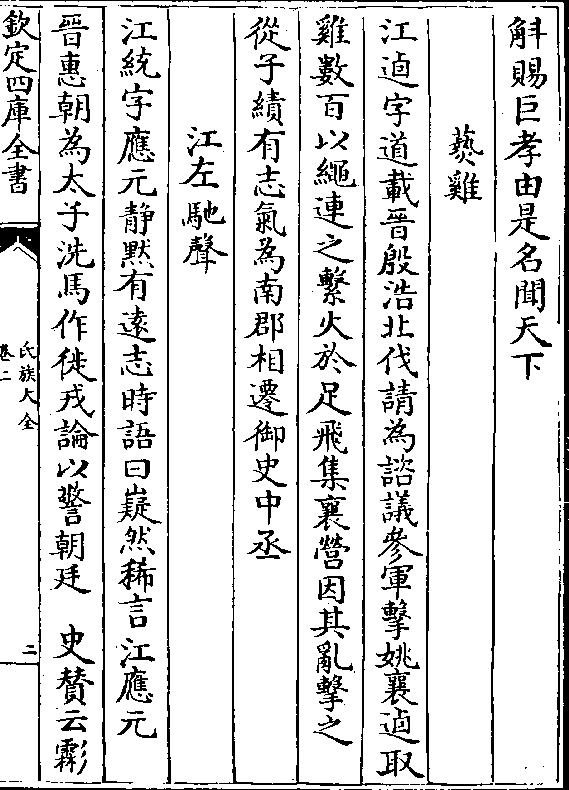 斛賜巨孝由是名聞天下
爇雞
江逌字道載晉殷浩北伐請為諮議參軍擊姚襄逌取
雞數百以繩連之繫火於足飛集襄營因其亂擊之
從子績有志氣為南郡相遷御史中丞
江左馳聲
江統字應元静默有遠志時語曰嶷然稀言江應元
晉惠朝為太子洗馬作徙戎論以警朝廷　史賛云
欽定四庫全書
氏族大全
卷二
二